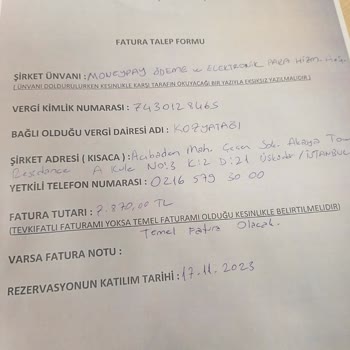 FATURA TALEP FORMU
ŞİRKET ÜNVANI : MONEYPAY ÖDEME ve ELEKTRONİK PARA HİZM.
( ÜNVANI DOLDURULURKEN KESİNLİKLE KARŞI TARAFIN OKUYACAĞI BİR YAZIYLA EKSİKSİZ YAZILMALIDIR )
VERGİ KİMLİK NUMARASI : 7430128465
BAĞLI OLDUĞU VERGİ DAİRESİ ADI : KOZYATAĞI
ŞİRKET ADRESİ ( KISACA ) : Acıbadem Mah. Çeçen Sok. Akasya
Residence A Kule No:3 K:2 D:21 Üsküdar / İSTANBUL
YETKİLİ TELEFON NUMARASI : 0216 579 30 00
FATURA TUTARI : 7.870,00 TL
(TEVKİFATLI FATURAMI YOKSA TEMEL FATURAMI OLDUĞU KESİNLİKLE BELİRTİLMELİDİR)
Temel Fatura Olacak.
VARSA FATURA NOTU :
REZERVASYONUN KATILIM TARİHİ : 17.11.2023